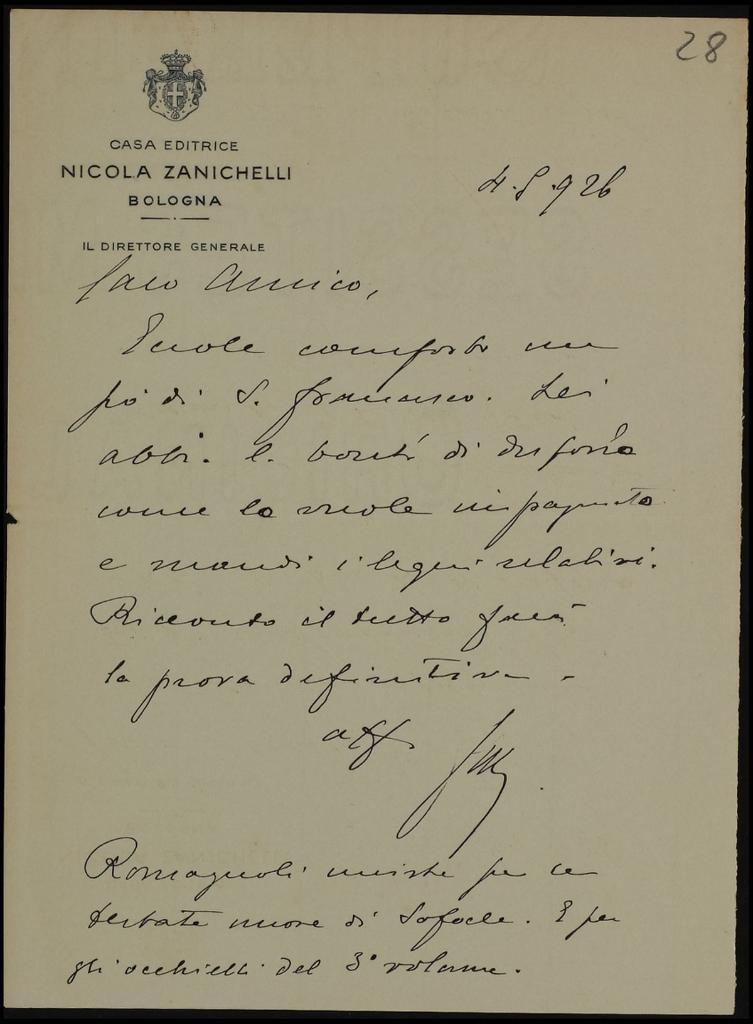 28
CASA EDITRICE
NICOLA ZANICHELLI
BOLOGNA
IL DIRETTORE GENERALE
4.5.926
Caro Amico,
Eccole composto un
pó di S. Francesco. Lei
abbia la bontà di disporla
come la vuole impaginata
e mandi i legni relativi.
Ricevuto il tutto farà
la prova definitiva.
aff
Romagnoli insiste per le
testate nuove di Sofocle. E per
gli occhielli del 3° volume.